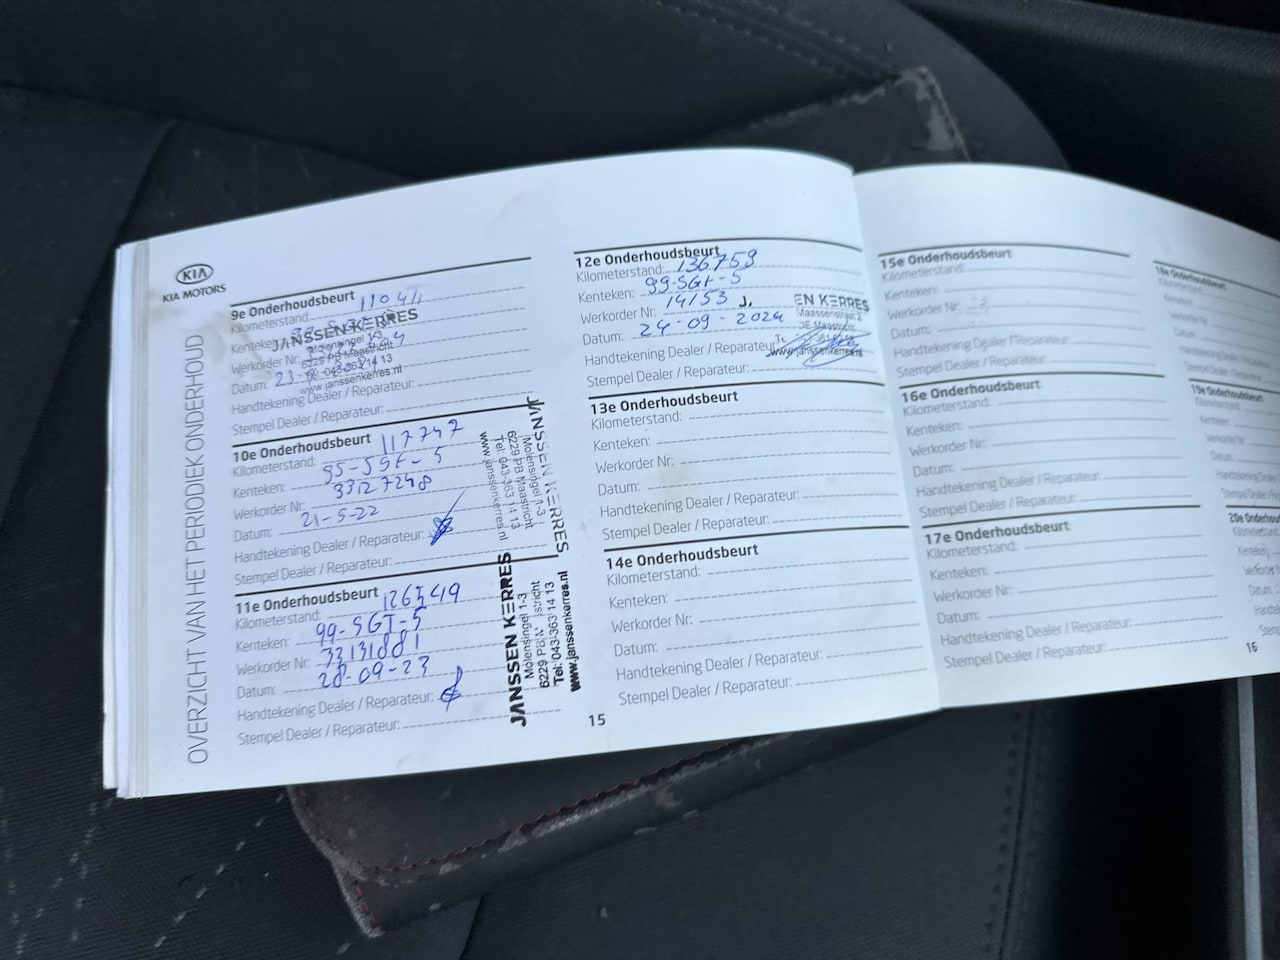 KIA
KIA MOTORS
OVERZICHT VAN HET PERIODIEK ONDERHOUD
9e Onderhoudsbeurt
Kilometerstand:
Kenteken:
Werkorder Nr:
Datum: 23
Handtekening Dealer / Reparateur:
Stempel Dealer / Reparateur:
JANSSEN KERRES
Molensingel 1-3
6229 PB Maastricht
Tel: 043-363 14 13
www.janssenkerres.nl
10e Onderhoudsbeurt
Kilometerstand: 117747
Kenteken: 95-SGT-5
Werkorder Nr: 33127248
Datum: 21-5-22
Handtekening Dealer / Reparateur:
Stempel Dealer / Reparateur:
JANSSEN KERRES
Molensingel 1-3
6229 PB Maastricht
Tel: 043-363 14 13
www.janssenkerres.nl
11e Onderhoudsbeurt
Kilometerstand: 126549
Kenteken: 99-SGT-5
Werkorder Nr: 33131881
Datum: 28-09-23
Handtekening Dealer / Reparateur:
Stempel Dealer / Reparateur:
JANSSEN KERRES
Molensingel 1-3
6229 PB M stricht
Tel: 043-363 14 13
www.janssenkerres.nl
15
12e Onderhoudsbeurt
Kilometerstand: 136759
Kenteken: 99-SGT-5
Werkorder Nr: 14153
Datum: 24-09-2024
Handtekening Dealer / Reparateur
Stempel Dealer / Reparateur:
J. EN KERRES
www.janssenkerres.nl
13e Onderhoudsbeurt
Kilometerstand:
Kenteken:
Werkorder Nr:
Datum:
Handtekening Dealer / Reparateur:
Stempel Dealer / Reparateur:
14e Onderhoudsbeurt
Kilometerstand:
Kenteken:
Werkorder Nr:
Datum:
Handtekening Dealer / Reparateur:
Stempel Dealer / Reparateur:
15e Onderhoudsbeurt
Kilometerstand:
Kenteken:
Werkorder Nr:
Datum:
Handtekening Dealer / Reparateur:
Stempel Dealer / Reparateur:
16e Onderhoudsbeurt
Kilometerstand:
Kenteken:
Werkorder Nr:
Datum:
Handtekening Dealer / Reparateur:
Stempel Dealer / Reparateur:
17e Onderhoudsbeurt
Kilometerstand:
Kenteken:
Werkorder Nr:
Datum:
Handtekening Dealer / Reparateur:
Stempel Dealer / Reparateur:
16